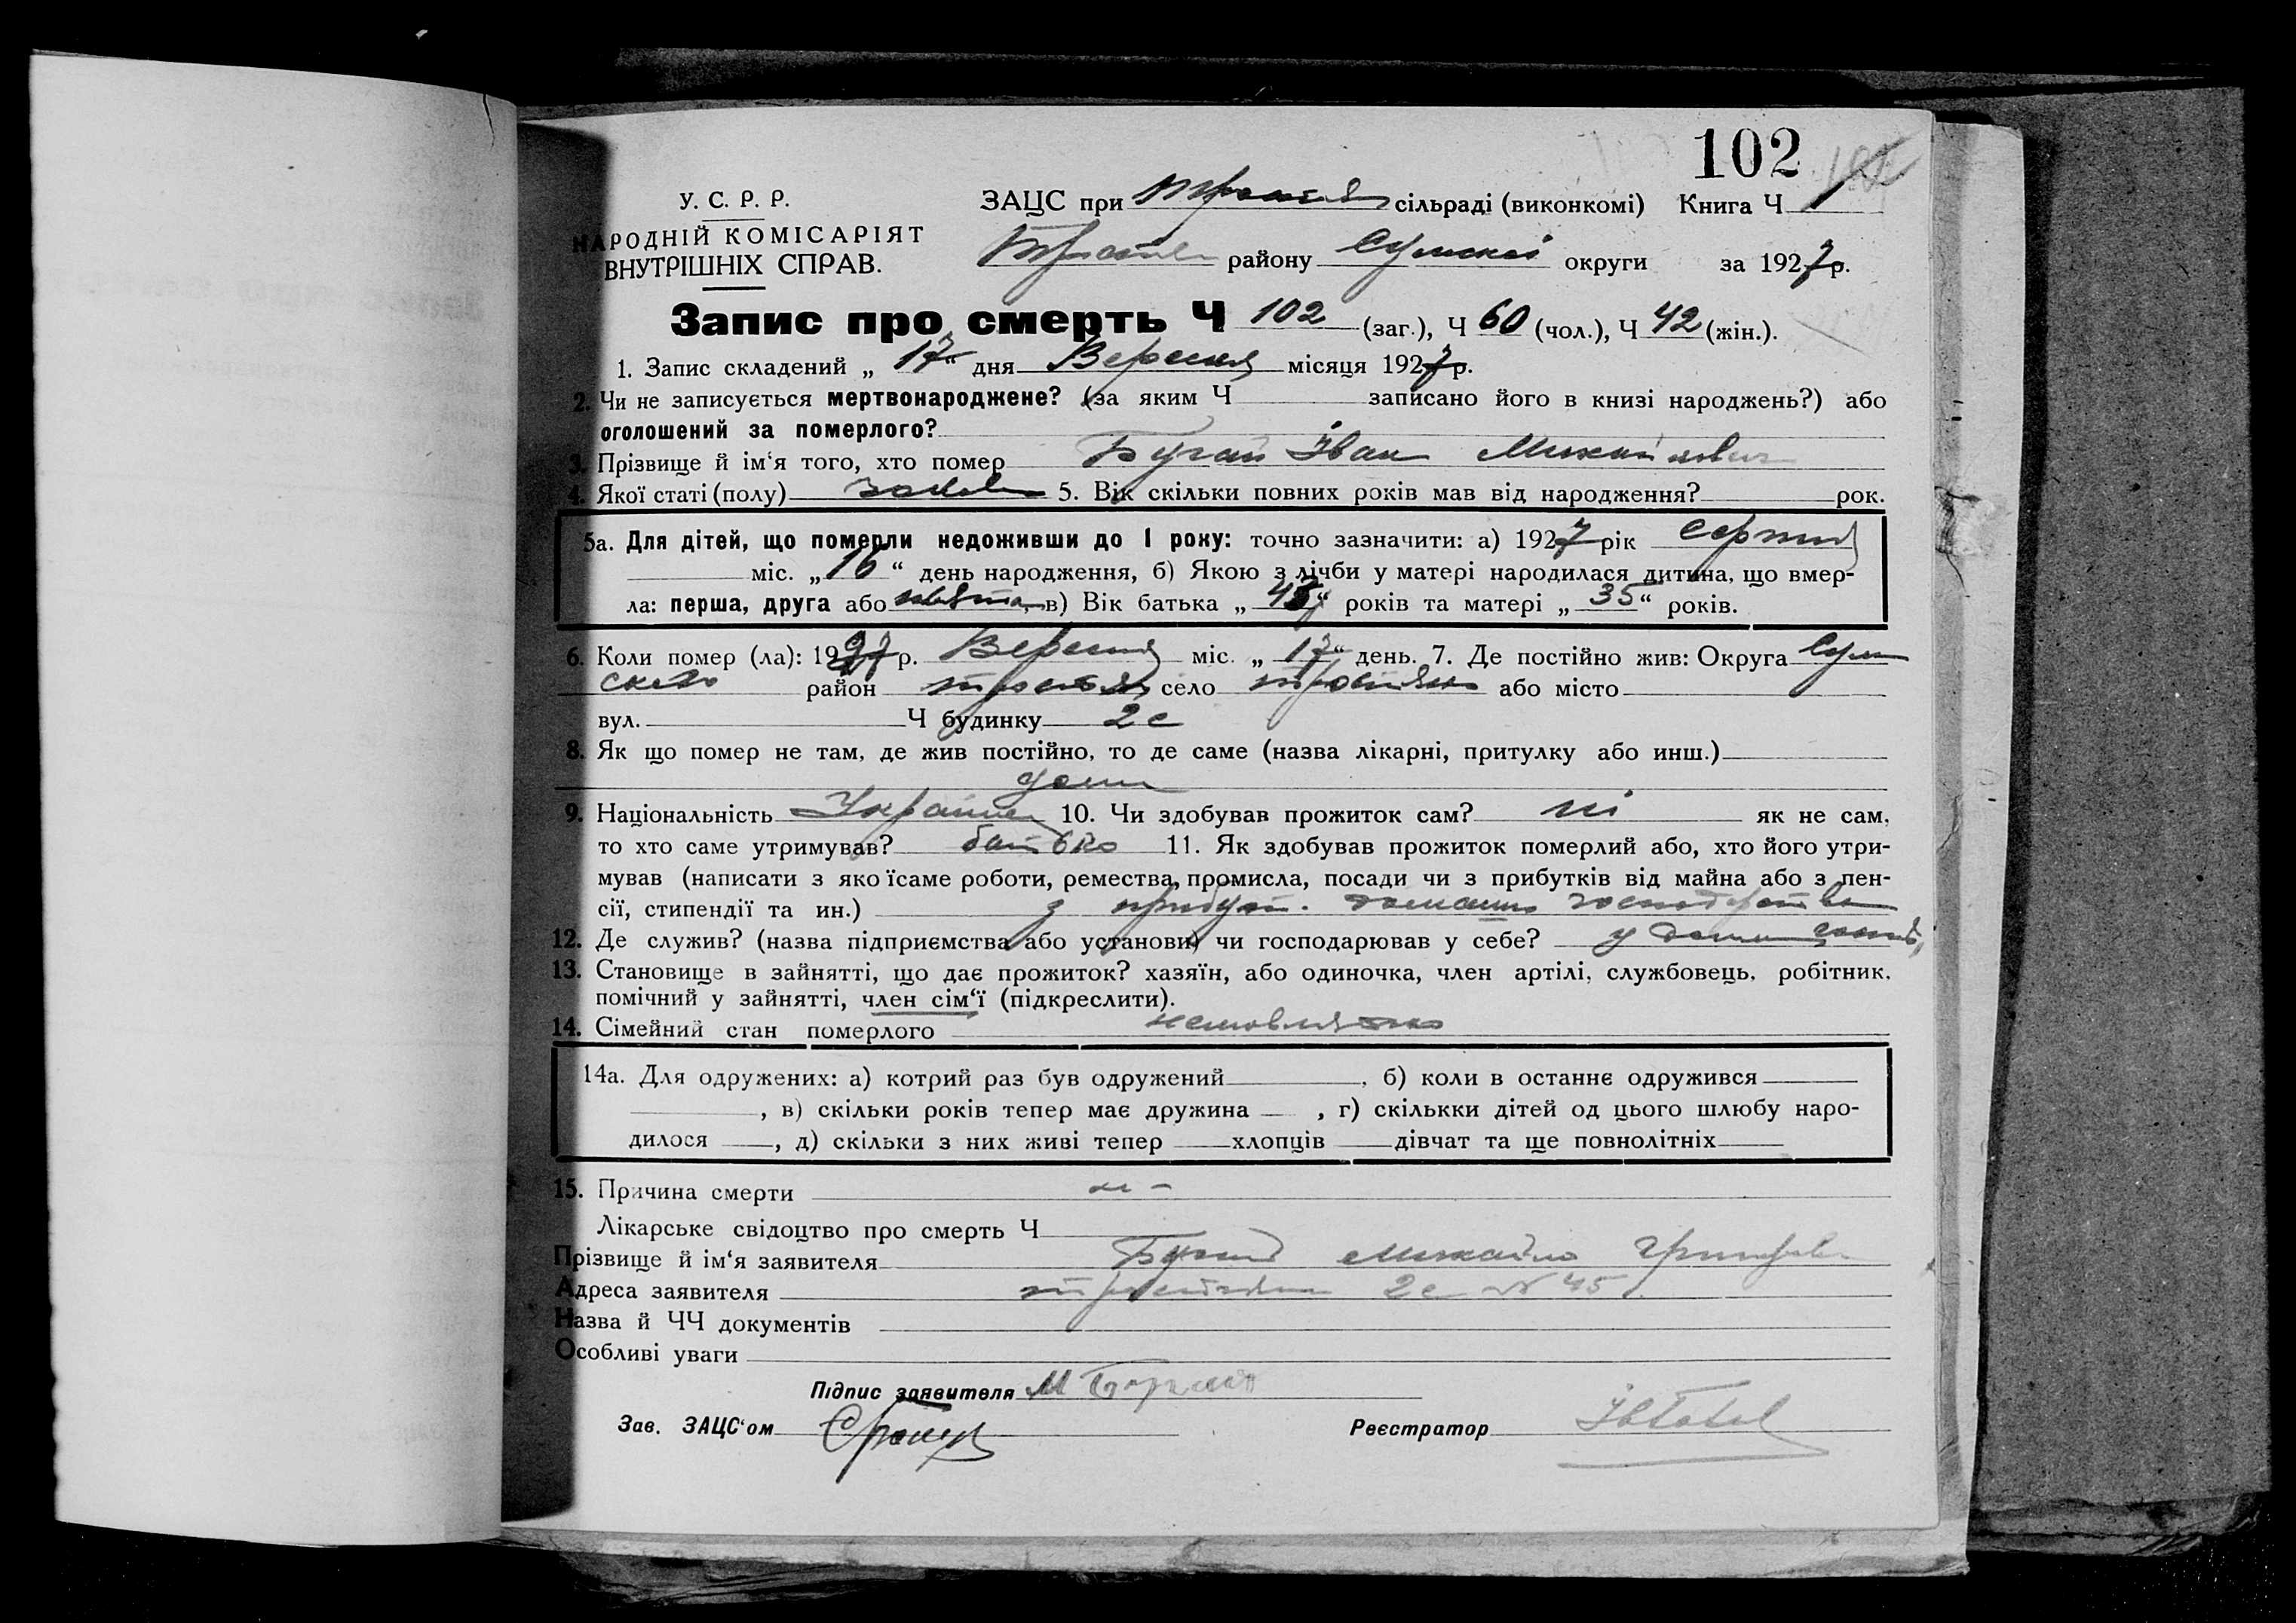 102
У. С. Р. Р.
НАРОДНІЙ КОМІСАРІЯТ
ВНУТРІШНІХ СПРАВ.
ЗАЦС при сільраді (виконкомі) Книга Ч 1
району Сумської округи за 1927 р.
Запис про смерть Ч 102 (заг.), Ч 60 (чол.), Ч 42 (жін.).
1. Запис складений „ 17 “ дня Вересня місяця 1927 р.
2. Чи не записується мертвонароджене? (за яким Ч записано його в книзі народжень?) або
оголошений за померлого?
3. Прізвище й ім‘я того, хто помер Бугай Іван Михайлович
4. Якої статі (полу) 5. Вік скільки повних років мав від народження? рок.
5а. Для дітей, що померли недоживши до 1 року: точно зазначити: а) 1927 рік Серпня
міс. „ 16 “ день народження, б) Якою з лічби у матері народилася дитина, що вмер-
ла: перша, друга або в) Вік батька „ “ років та матері „ 35 “ років.
6. Коли помер (ла): 1927 р. Вересня міс. „ 17 “ день. 7. Де постійно жив: Округа Сум
ська район село або місто
вул. Ч будинку 2с
8. Як що помер не там, де жив постійно, то де саме (назва лікарні, притулку або инш.)
дома
9. Національність Українец 10. Чи здобував прожиток сам? ні як не сам,
то хто саме утримував? батько 11. Як здобував прожиток померлий або, хто його утри-
мував (написати з якоїсаме роботи, ремества, промисла, посади чи з прибутків від майна або з пен-
сії, стипендії та ин.) з прибут. господарства
12. Де служив? (назва підприємства або установи) чи господарював у себе? у
13. Становище в зайнятті, що дає прожиток? хазяїн, або одиночка, член артілі, службовець, робітник,
помічний у зайнятті, член сім‘ї (підкреслити).
14. Сімейний стан померлого немовлятко
14а. Для одружених: а) котрий раз був одружений , б) коли в останнє одружився
, в) скільки років тепер має дружина , г) скількки дітей од цього шлюбу наро-
дилося , д) скільки з них живі тепер хлопців дівчат та ще повнолітніх
15. Причина смерти
Лікарське свідоцтво про смерть Ч
Прізвище й ім‘я заявителя Бугай Михайло
Адреса заявителя 2с № 45
Назва й ЧЧ документів
Особливі уваги
Підпис заявителя М
Зав. ЗАЦС‘ом
Реєстратор